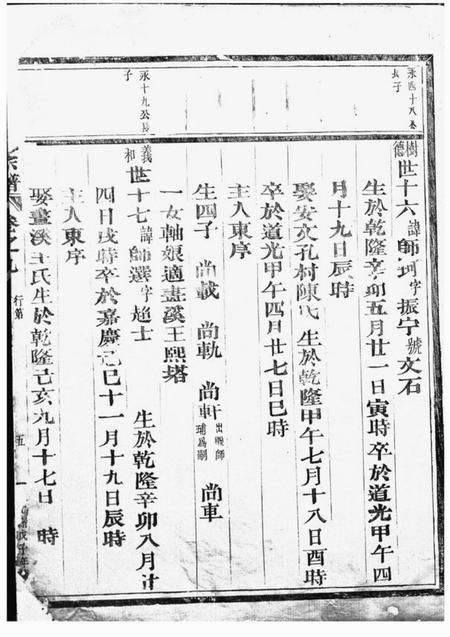 永四十八公長
子
樹德
世十六諱師珂字振宁號文石
生於乾隆辛卯五月廿一日寅時卒於道光甲午四
月十九日辰時
娶安文孔村陳氏 生於乾隆甲午七月十八日酉時
卒於道光甲午四月廿七日巳時
主人東序
生四子 尚載 尚軌 尚軒出繼師 尚車
一女軸娘適畫溪王熙塔
永十九公長
子
義和
世十七諱師選字超士 生於乾隆辛卯八月廿
四日戌時卒於嘉慶己巳十一月十九日辰時
主人東序
娶畫溪王氏生於乾隆己亥九月十七日 時
宗譜 卷之九 行第 五